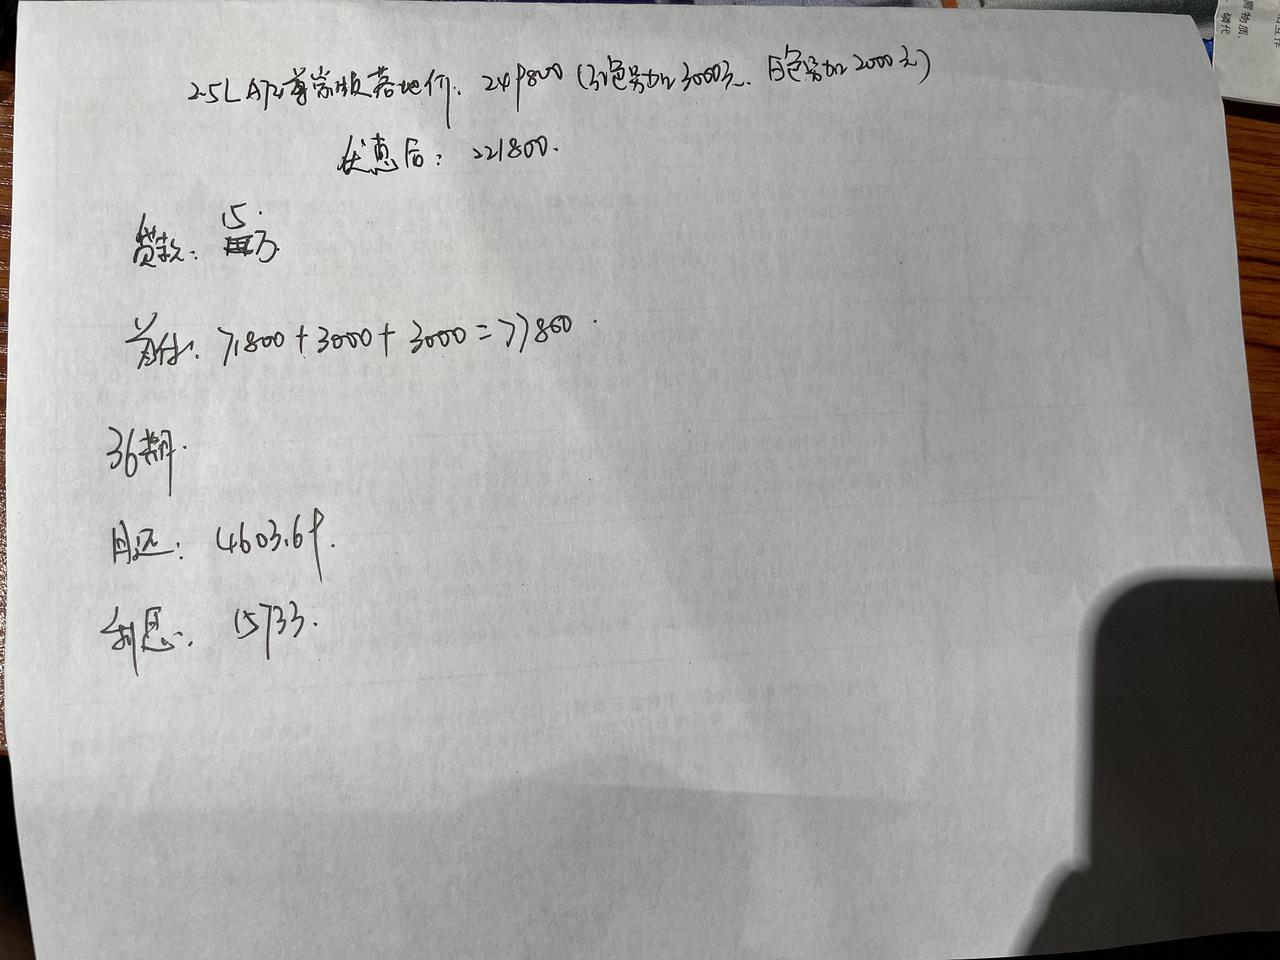 2.5L 尊崇版落地价. 249800 (红色另加3000元. 白色另加2000元)
优惠后: 221800.
贷款: 15.万
首付: 71800+3000+3000=77800.
36期.
月还: 4603.69.
利息: 15733.
需物质.
磷代